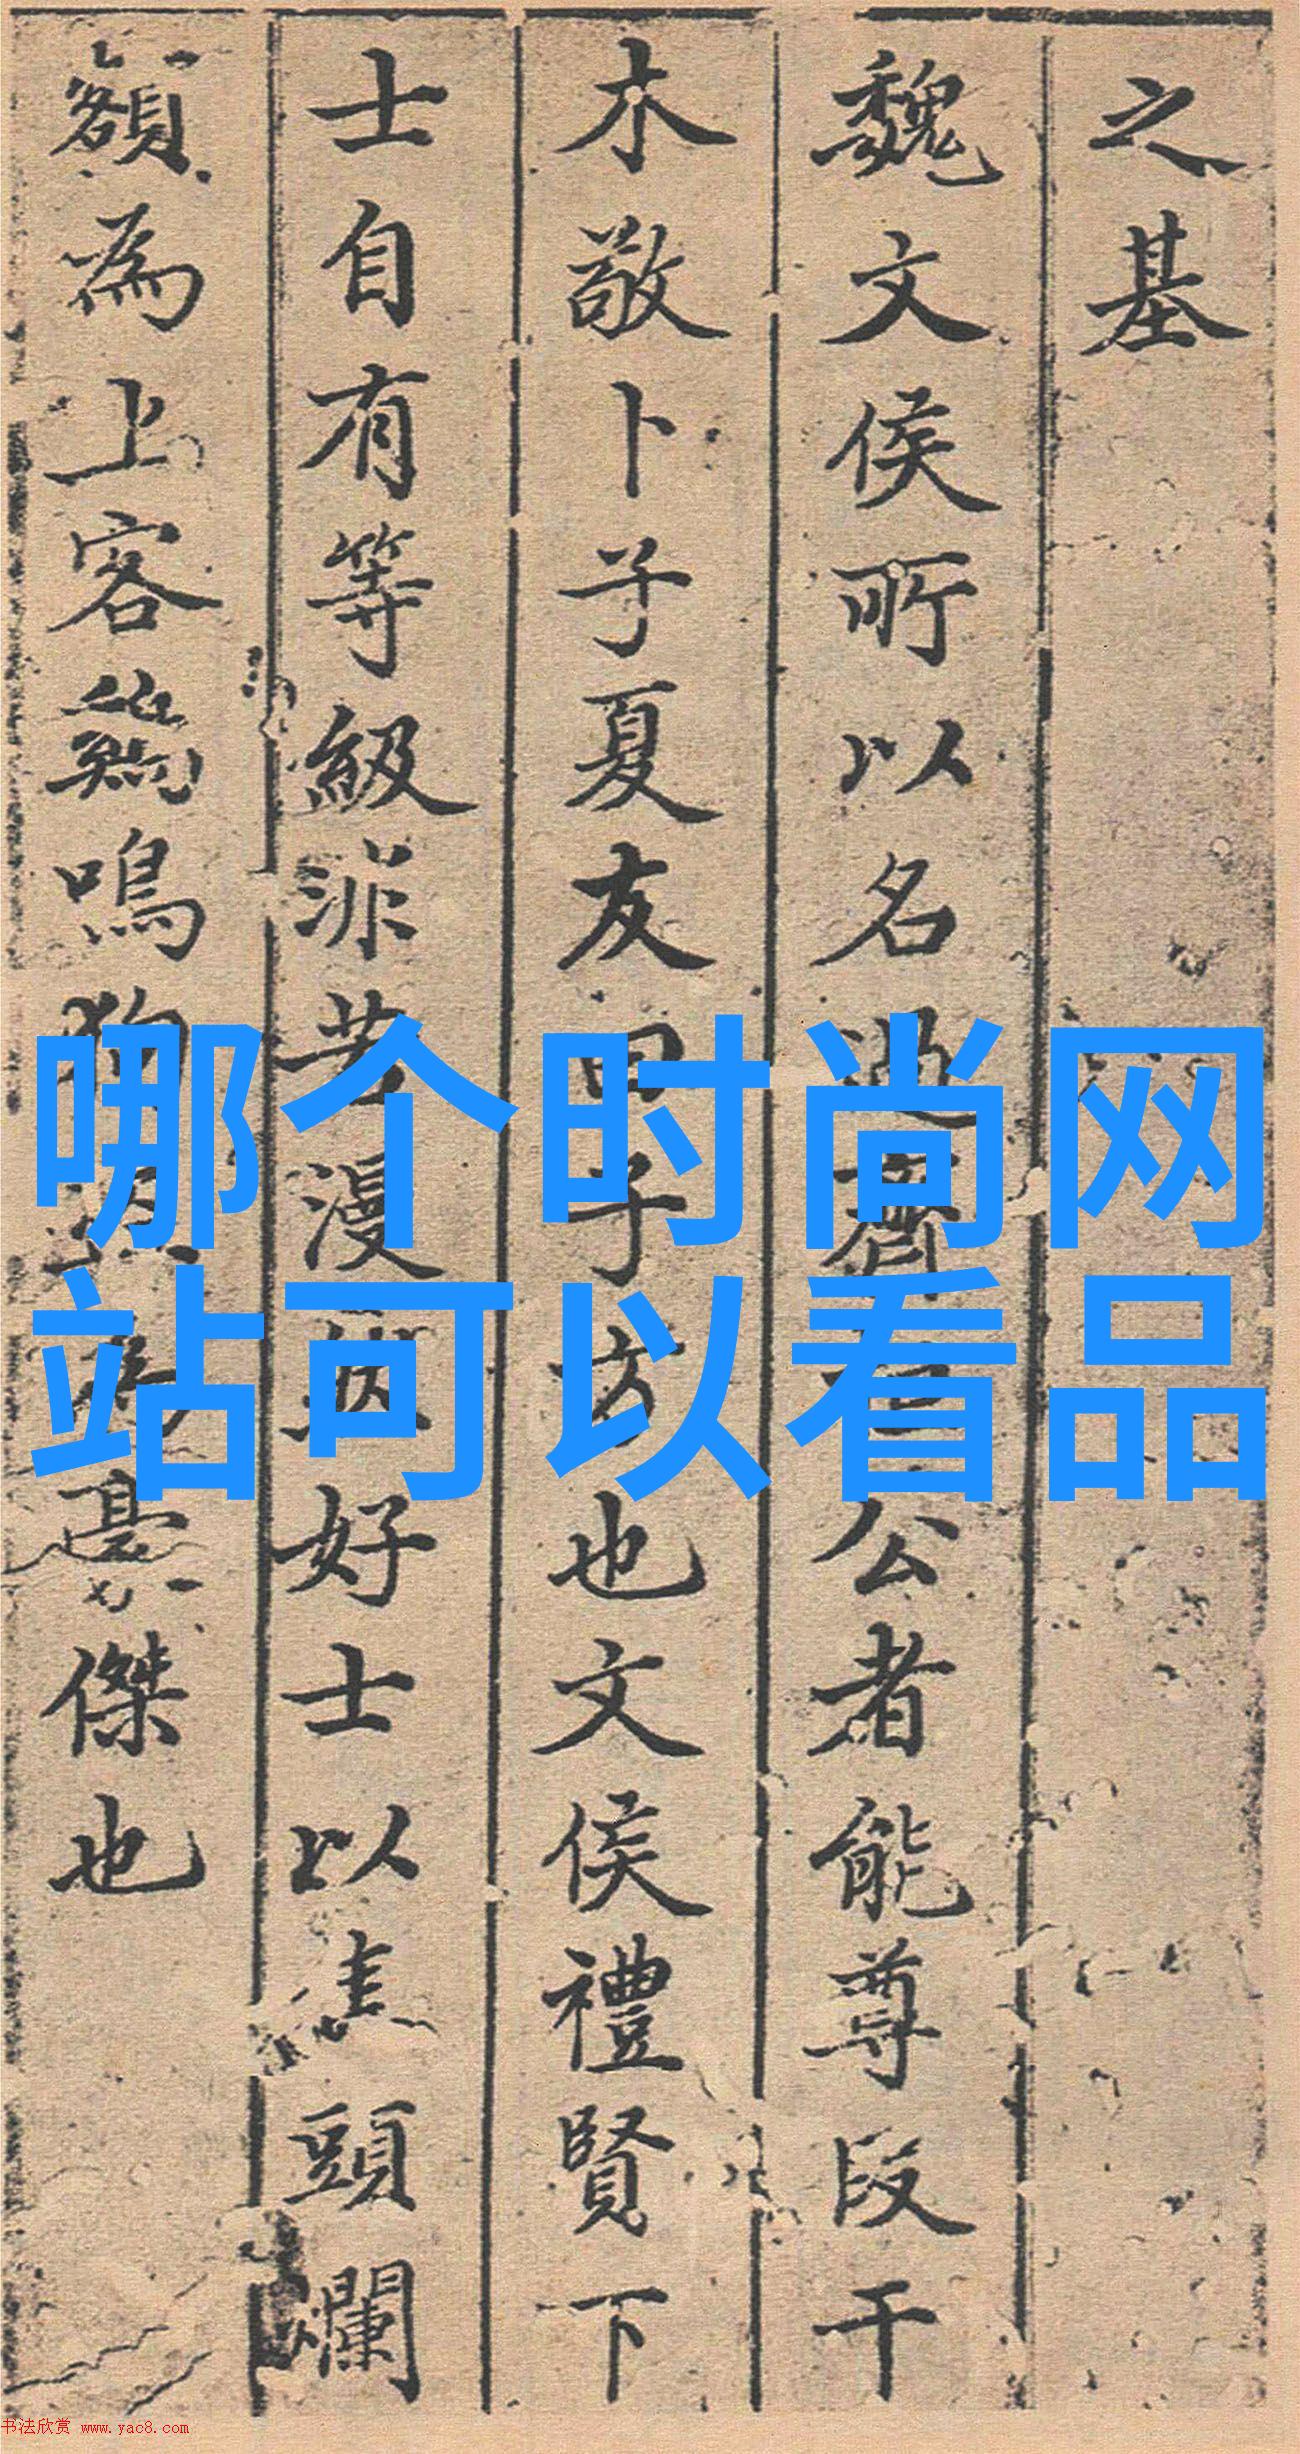 之基
魏文侯所以名過齊桓公者能尊段干
木敬卜子夏友田子方也文侯禮賢下
士自有等級非若漫然好士以焦頭爛
額為上客雞鳴狗盜為豪傑也
哪个时尚网
站可以看品
书法欣赏 www.yac8.com